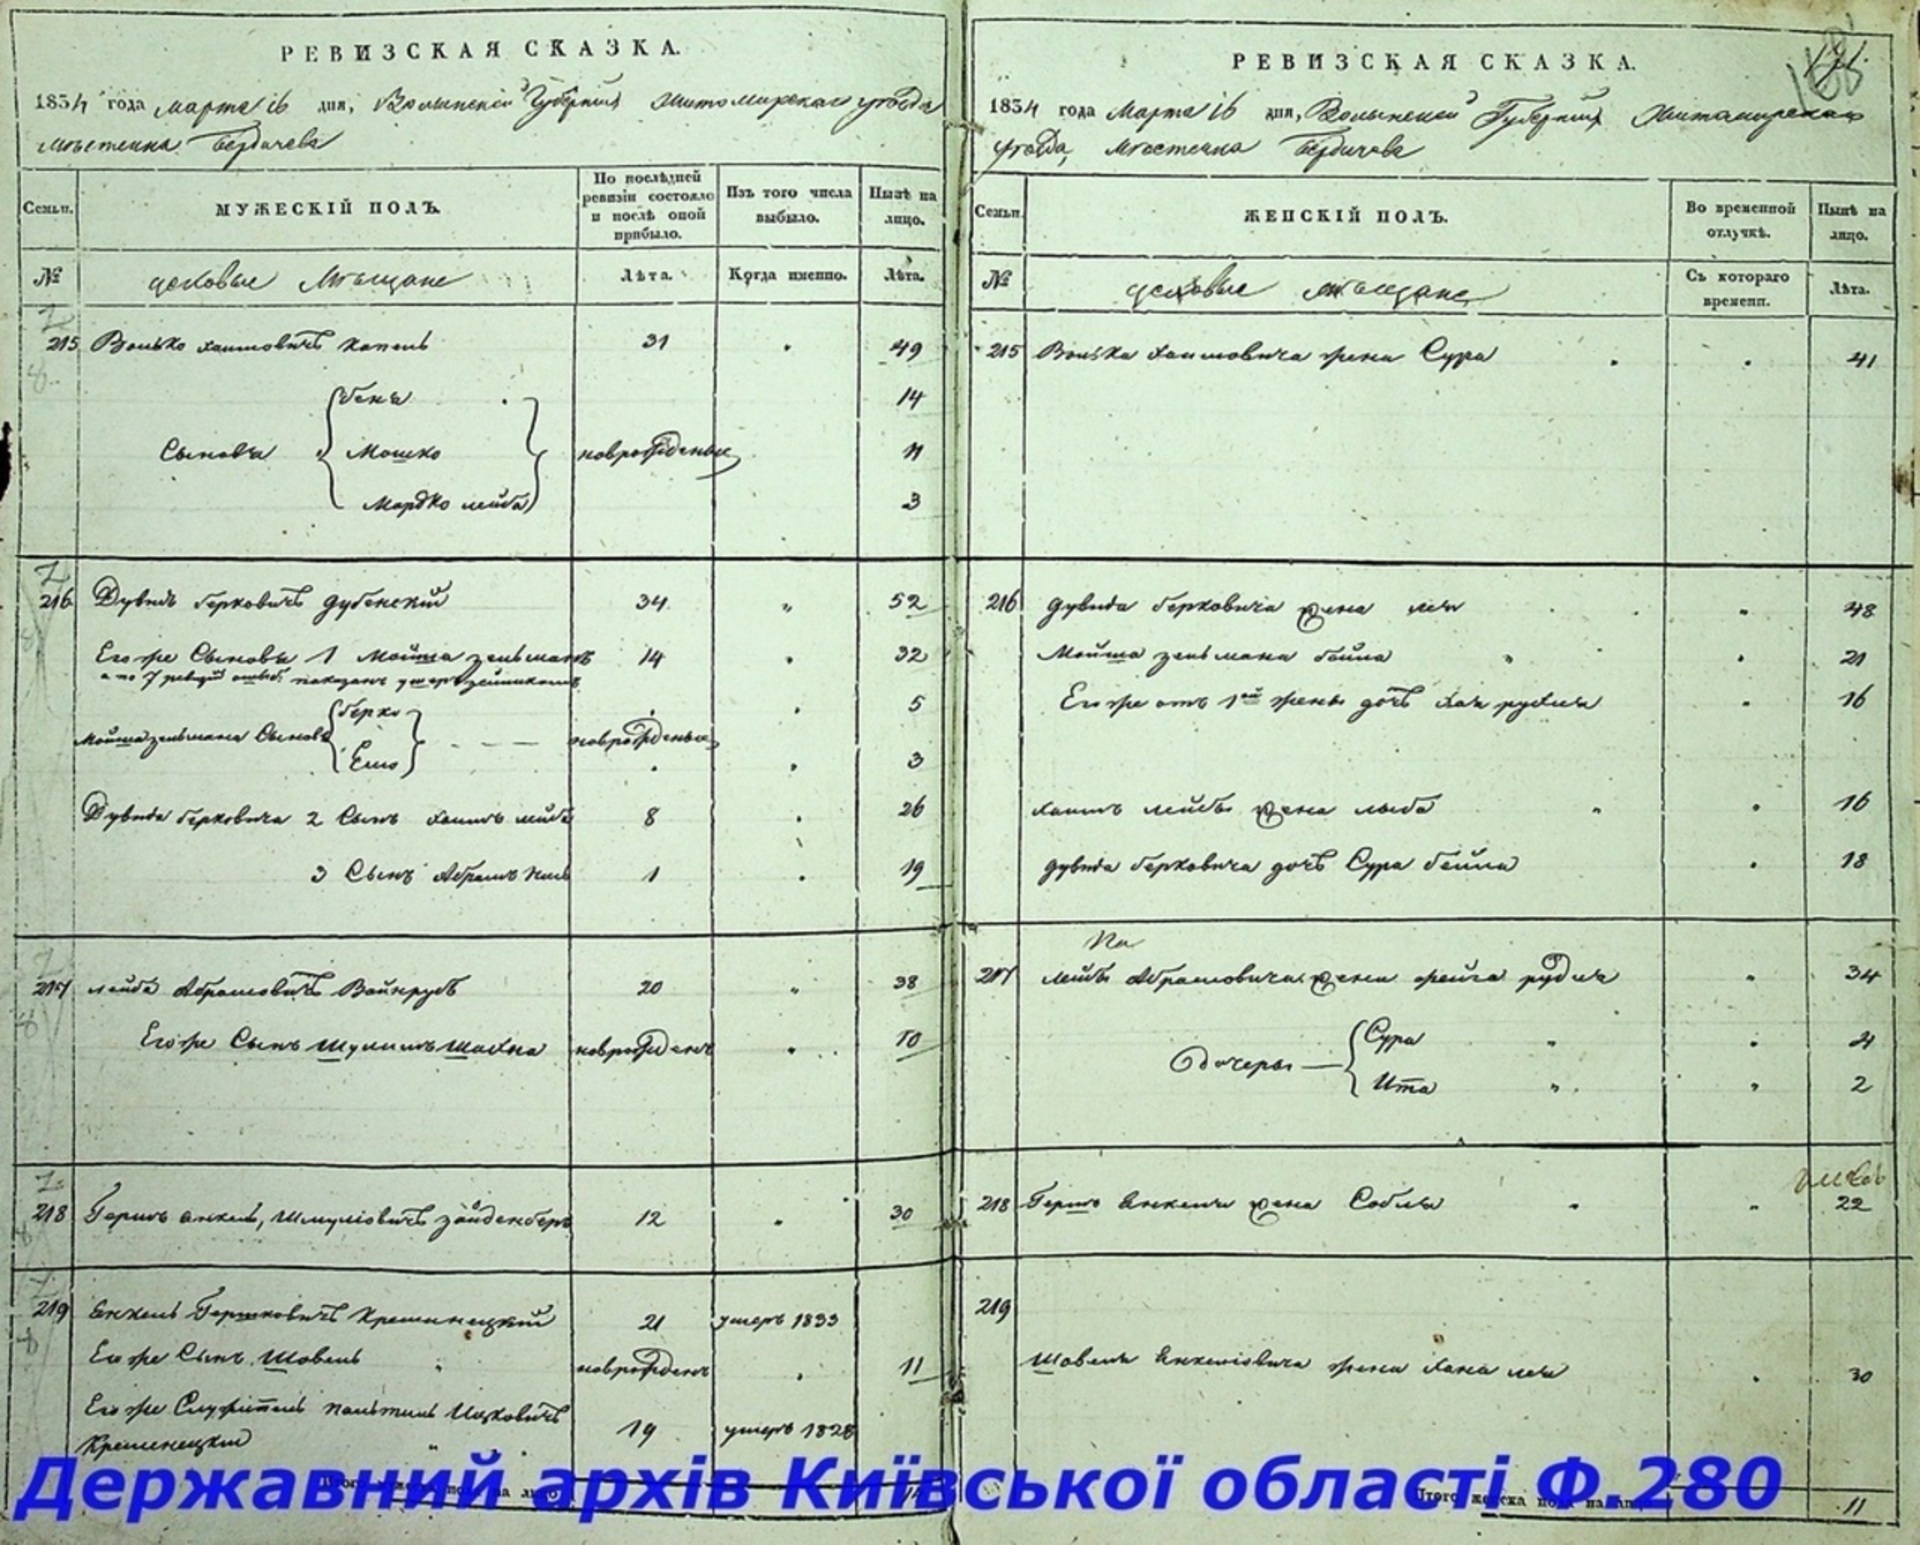 РЕВИЗСКАЯ СКАЗКА.
1834 года марта 16 дня, Волынской Губернии Житомирскаго уѣзда
мѣстечка Бердичева
Семьи. МУЖЕСКІЙ ПОЛЪ. По послѣдней ревизіи состояло и послѣ оной прибыло. Изъ того числа выбыло. Нынѣ на лицо.
№ цеховые Мѣщане Лѣта. Когда именно. Лѣта.
215 Волько Хаимовичъ 31 49
Бенъ 14
Сыновья Мошко новорожденые 11
Мордко лейба 3
216 Дувидъ Берковичъ Дубенскій 34 52
Его же Сыновья 1 Мойша зельманъ 14 32
а по 7 ревизіи показанъ
Берко 5
Мойша зельмана Сыновья новорожденые
3
Дувида Берковича 2 Сынъ Хаимъ лейба 8 26
3 Сынъ Абрамъ 1 19
217 лейба Абрамовичъ Вайнрубъ 20 38
Его же Сынъ Шулимъ новорожденъ 10
218 Гершъ Янкель, Шмуліовичъ зайденберъ 12 30
219 Янкель Гершковичъ Кременецкій 21 умеръ 1833
Его же Сынъ Шовель новорожденъ 11
Его же Служитель Пальтіель Ицковичъ 19 умеръ 1828
Кременецкій
РЕВИЗСКАЯ СКАЗКА.
1834 года Марта 16 дня, Волынской Губерніи Житомирскаго
уѣзда, мѣстечка Бердичева
Семьи. ЖЕНСКІЙ ПОЛЪ. Во временной отлучкѣ. Нынѣ на лицо.
№ цеховые мѣщане Съ котораго времени. Лѣта.
215 Волька Хаимовича жена Сура 41
216 Дувида Берковича жена лея 48
Мойша зельмана бейла 21
Его же отъ 1ой жены дочь Хая рухля 16
Хаимъ лейбы жена 16
Дувида Берковича дочь Сура бейла 18
217 лейбы Абрамовича жена фейга рудля 34
Сура 4
Дочеры
Ита 2
218 Гершъ Янкеля жена Собля 22
219
Шовеля Янкеліовича жена Хана лея 30
Итого женска пола на лицо 11
Державний архів Київської області Ф.280